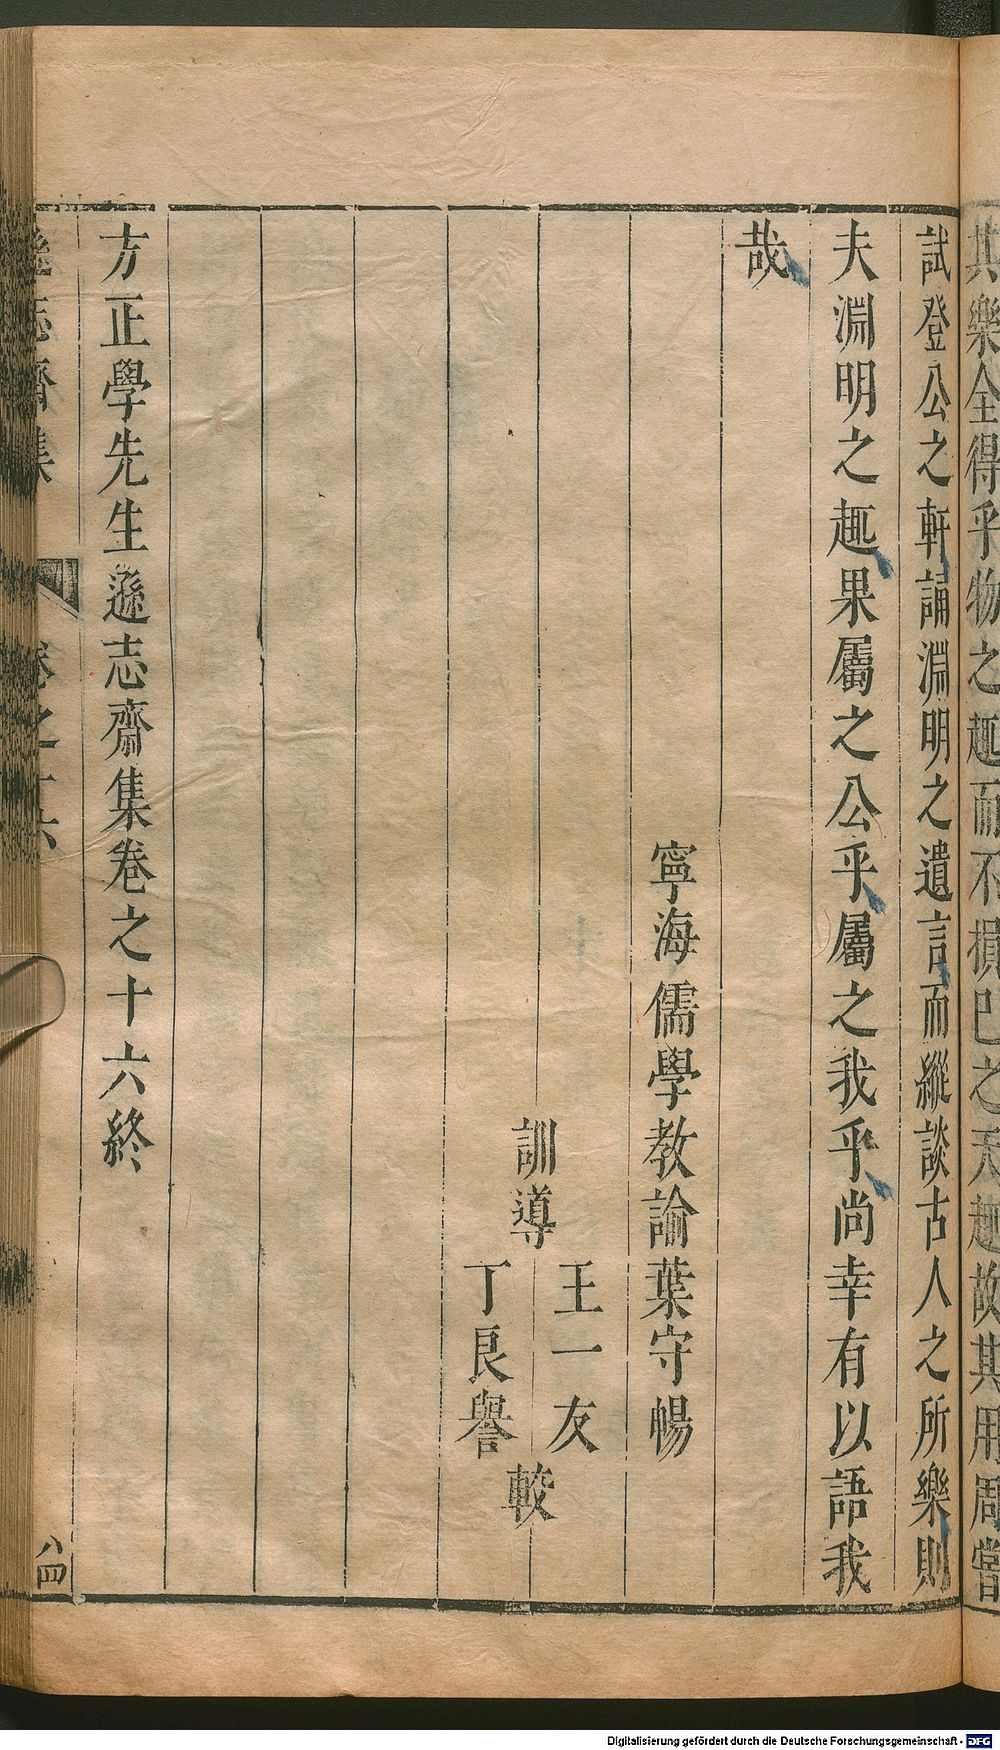 其樂全得乎物之趣而不損己之天趣故其用周嘗
試登公之軒誦淵明之遺言而縱談古人之所樂則
夫淵明之趣果屬之公乎屬之我乎尚幸有以語我
哉
寧海儒學教諭葉守暢
訓導
王一友
丁良譽
較
方正學先生遜志齋集卷之十六終
遜志齋集 卷之十六 八四
Digitalisierung gefördert durch die Deutsche Forschungsgemeinschaft - DFG